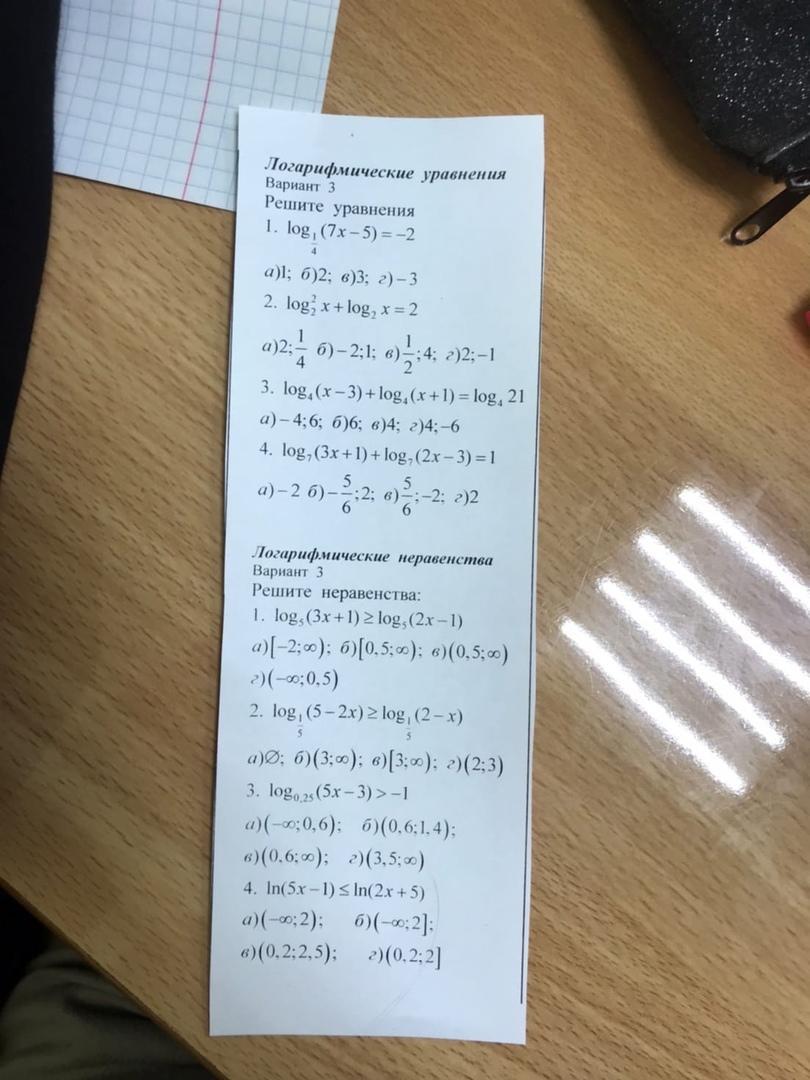 Логарифмические уравнения
Вариант 3
Решите уравнения
1. log_{1/4}(7x−5)=−2
а)1; б)2; в)3; г)−3
2. log₂² x+log₂ x=2
а)2;1/4 б)−2;1; в)1/2;4; г)2;−1
3. log₄(x−3)+log₄(x+1)=log₄ 21
а)−4;6; б)6; в)4; г)4;−6
4. log₇(3x+1)+log₇(2x−3)=1
а)−2 б)−5/6;2; в)5/6;−2; г)2
Логарифмические неравенства
Вариант 3
Решите неравенства:
1. log₅(3x+1)≥log₅(2x−1)
а)[−2;∞); б)[0,5;∞); в)(0,5;∞)
г)(−∞;0,5)
2. log_{1/5}(5−2x)≥log_{1/5}(2−x)
а)∅; б)(3;∞); в)[3;∞); г)(2;3)
3. log_{0,25}(5x−3)>−1
а)(−∞;0,6); б)(0,6;1,4);
в)(0,6;∞); г)(3,5;∞)
4. ln(5x−1)≤ln(2x+5)
а)(−∞;2); б)(−∞;2];
в)(0,2;2,5); г)(0,2;2]